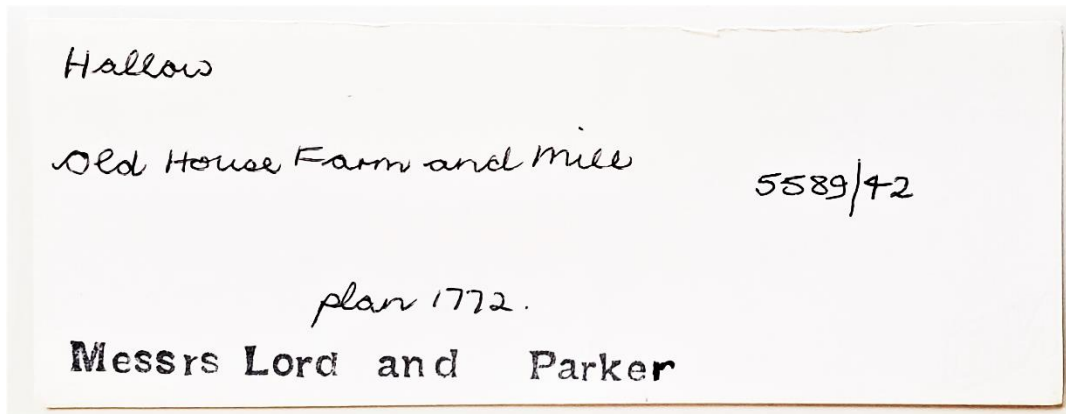 Hallow
Old House Farm and Mill
5589/42
plan 1772.
Messrs Lord and Parker